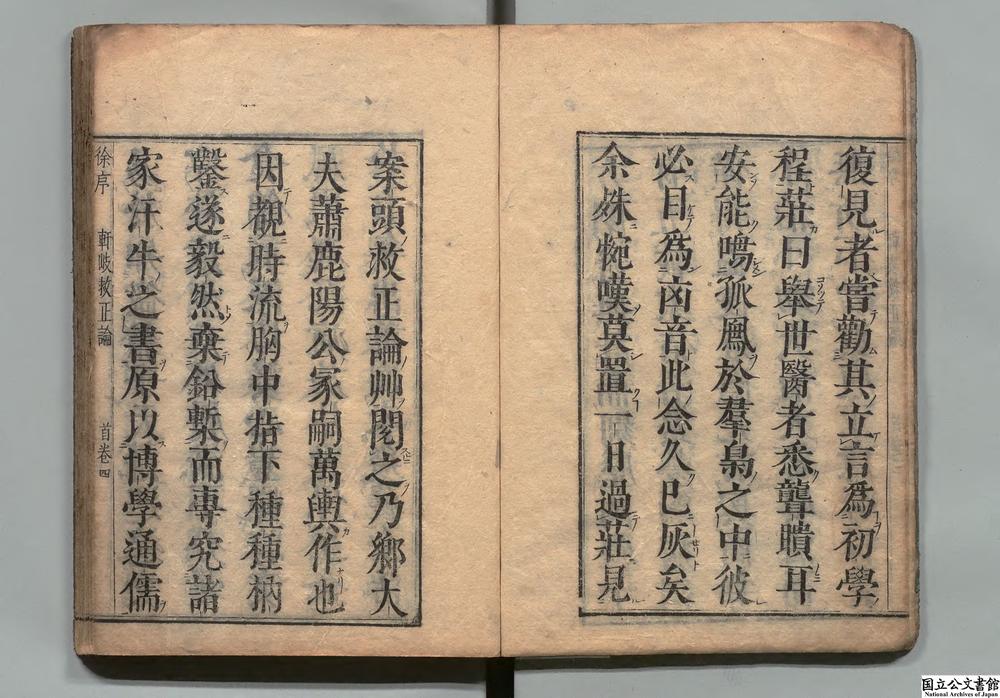 復見者嘗勸其立言爲初學
程莊曰舉世醫者悉聾聵耳
安能鳴孤鳳於羣梟之中彼
必目爲凶音此念久已灰矣
余殊惋嘆莫置一日過莊見
案頭救正論艸閱之乃鄉大
夫蕭鹿陽公冢嗣萬輿作也
因觀時流胸中指下種種枘
鑿遂毅然棄鉛槧而專究諸
家汗牛之書原以博學通儒
徐序 軒岐救正論 首卷 四
国立公文書館
National Archives of Japan